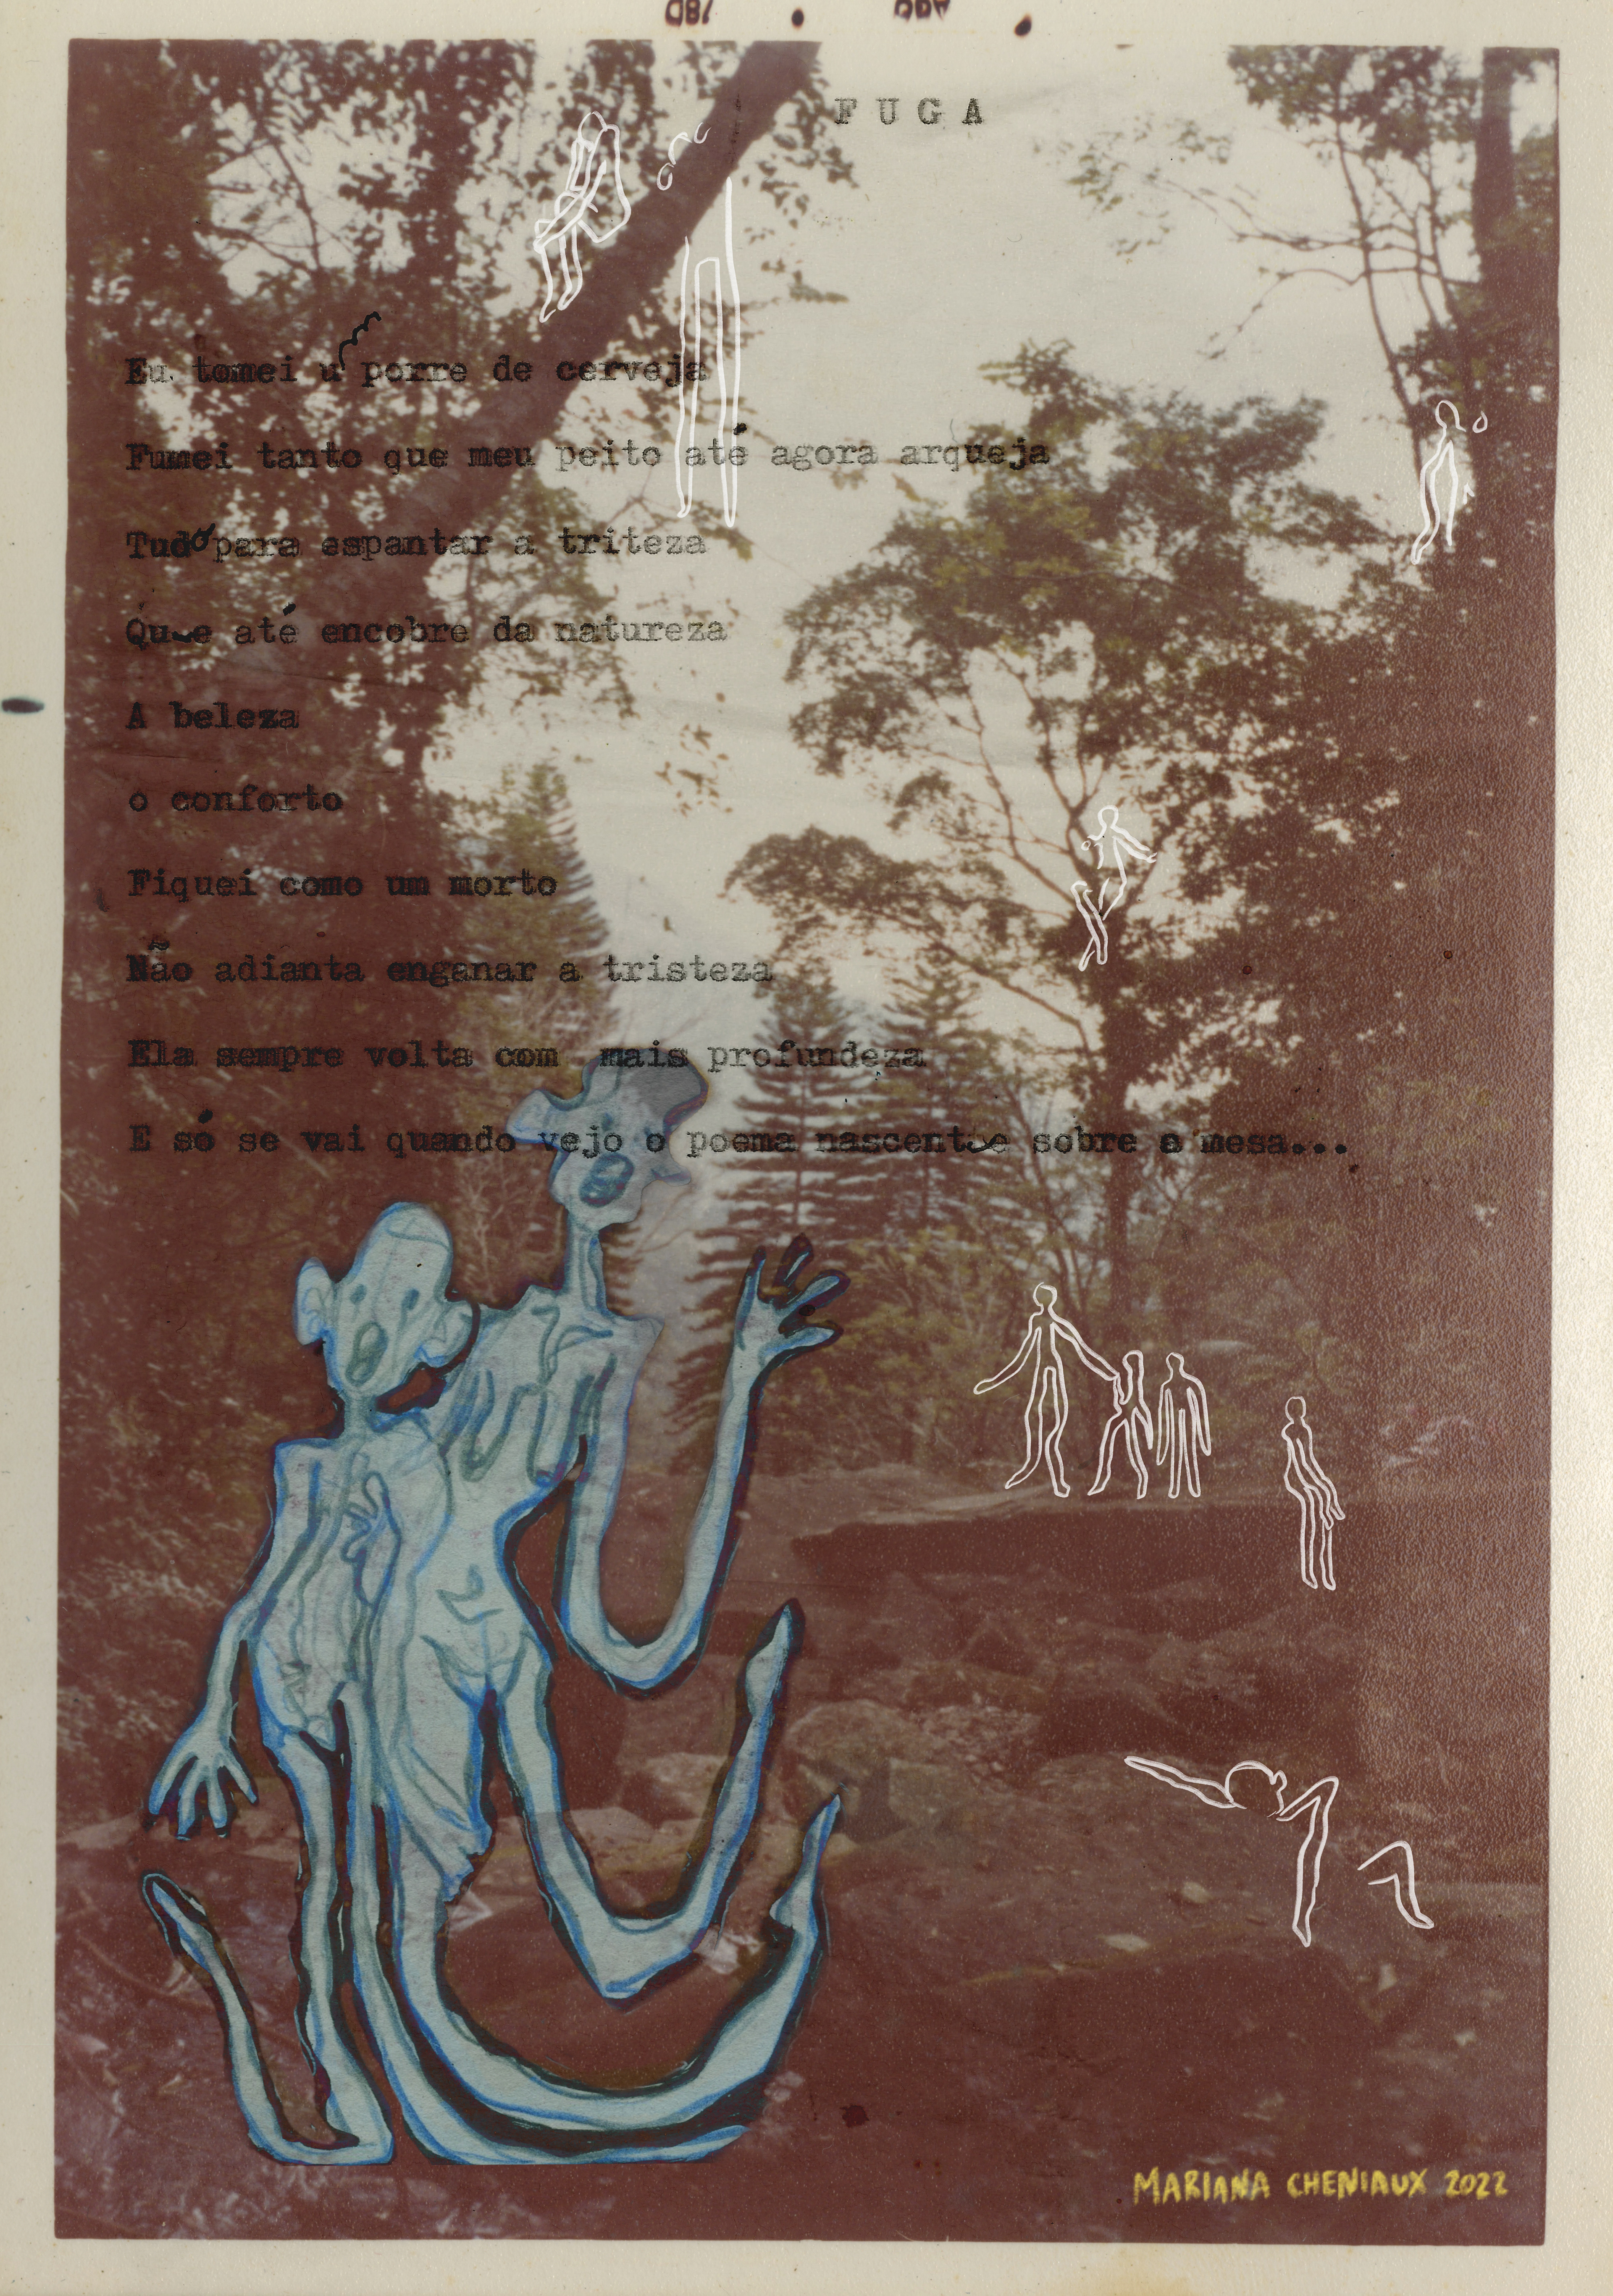 FUGA
Eu tomei u porre de cerveja
Fumei tanto que meu peito até agora arqueja
Tudo para espantar a triteza
Que até encobre da natureza
A beleza
o conforto
Fiquei como um morto
Não adianta enganar a tristeza
Ela sempre volta com mais profundeza
E só se vai quando vejo o poema nascente sobre a mesa...
MARIANA CHENIAUX 2022